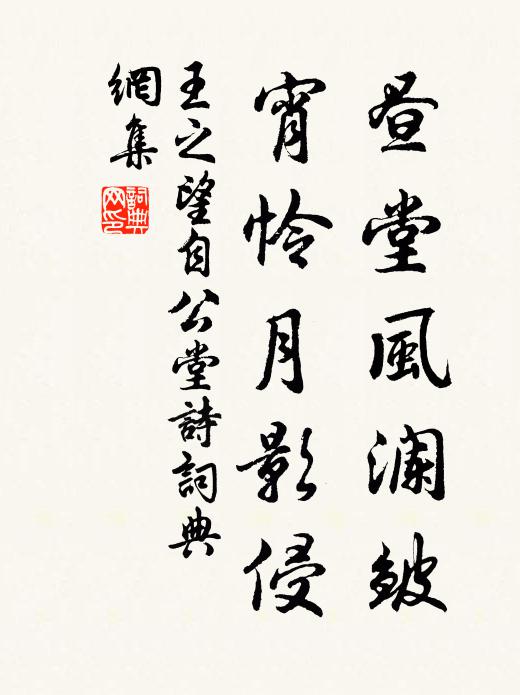 昼堂風澜皴
宵怜月影侵
王之望自公堂詩詞典
網集
詞典网印